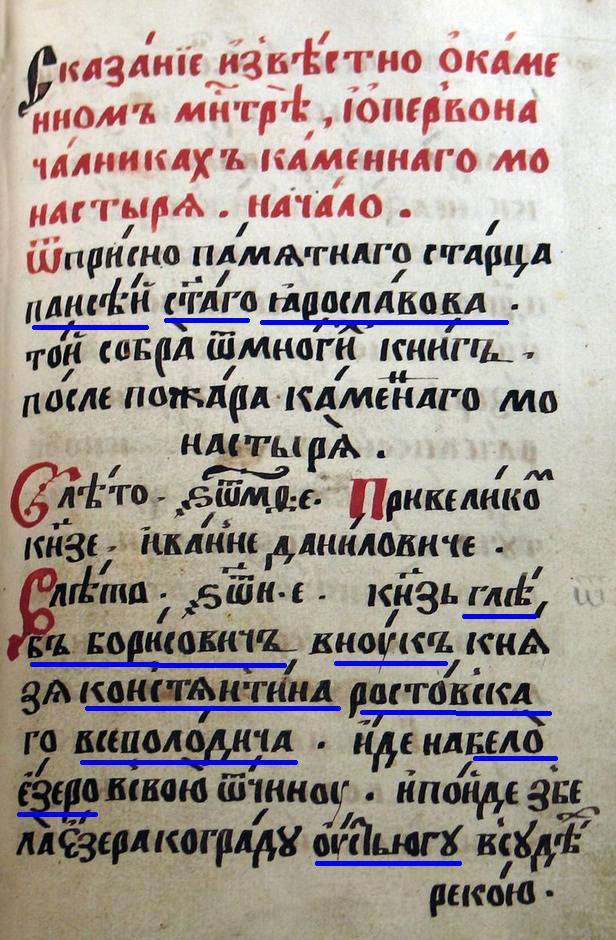 Сказа́нїе и҆звѣ́стно ѻ҆ка́ме
нномъ мн҃трѣ̀, і҆ѻ҆первона
ча́лникахъ ка́меннаго мо
настырѧ̀. нача́ло.
ѿпри́сно па́мѧтнаго ста́рца
паисѣ́й ст҃а́го ꙗ҆росла́вова.
то́й собра̀ ѿмно́гихъ кни́гъ.
по́сле пожа́ра ка́меннаго мо
настырѧ̀.
Влѣ́то. ҂ѕ҃ѿмд҃.е. Привели́ко
кн҃зе. и҆ва́нне дани́ловиче.
Влѣ́та. ҂ѕ҃ѿн.е. кн҃зь глѣ́,
бъ бори́совичъ вноу́къ кнѧ
зѧ констѧнти́на росто́вска
го всеволо́дича. и҆́де набѣло̀
е҆́зеро всвою̀ ѿ́чинноу. и҆по́иде збе
ла̀е҆́зера когра́дꙋ оу҆́стьюгꙋ всꙋ́дѣ
реко́ю.